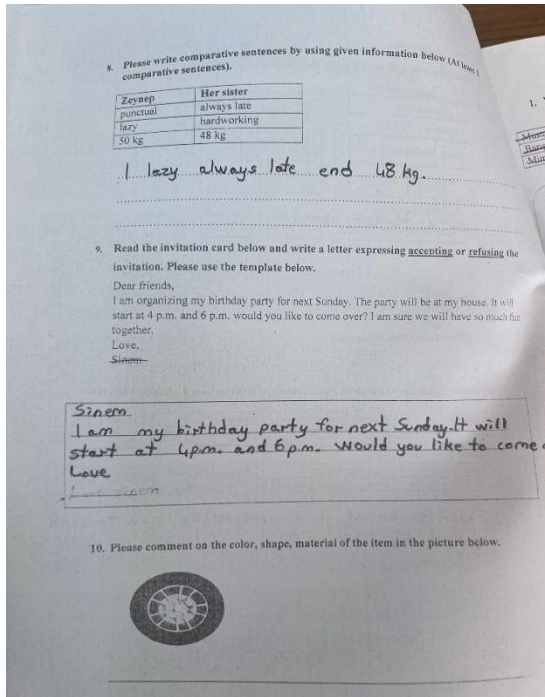 8. Please write comparative sentences by using given information below (At least
comparative sentences).
Zeynep Her sister
punctual always late
lazy hardworking
50 kg 48 kg
I lazy always late end 48 kg.
9. Read the invitation card below and write a letter expressing accepting or refusing the
invitation. Please use the template below.
Dear friends,
I am organizing my birthday party for next Sunday. The party will be at my house. It will
start at 4 p.m. and 6 p.m. would you like to come over? I am sure we will have so much fun
together.
Love,
Sinem
Sinem
I am my birthday party for next Sunday. It will
start at 4p.m. and 6p.m. Would you like to come
Love
10. Please comment on the color, shape, material of the item in the picture below.
1.